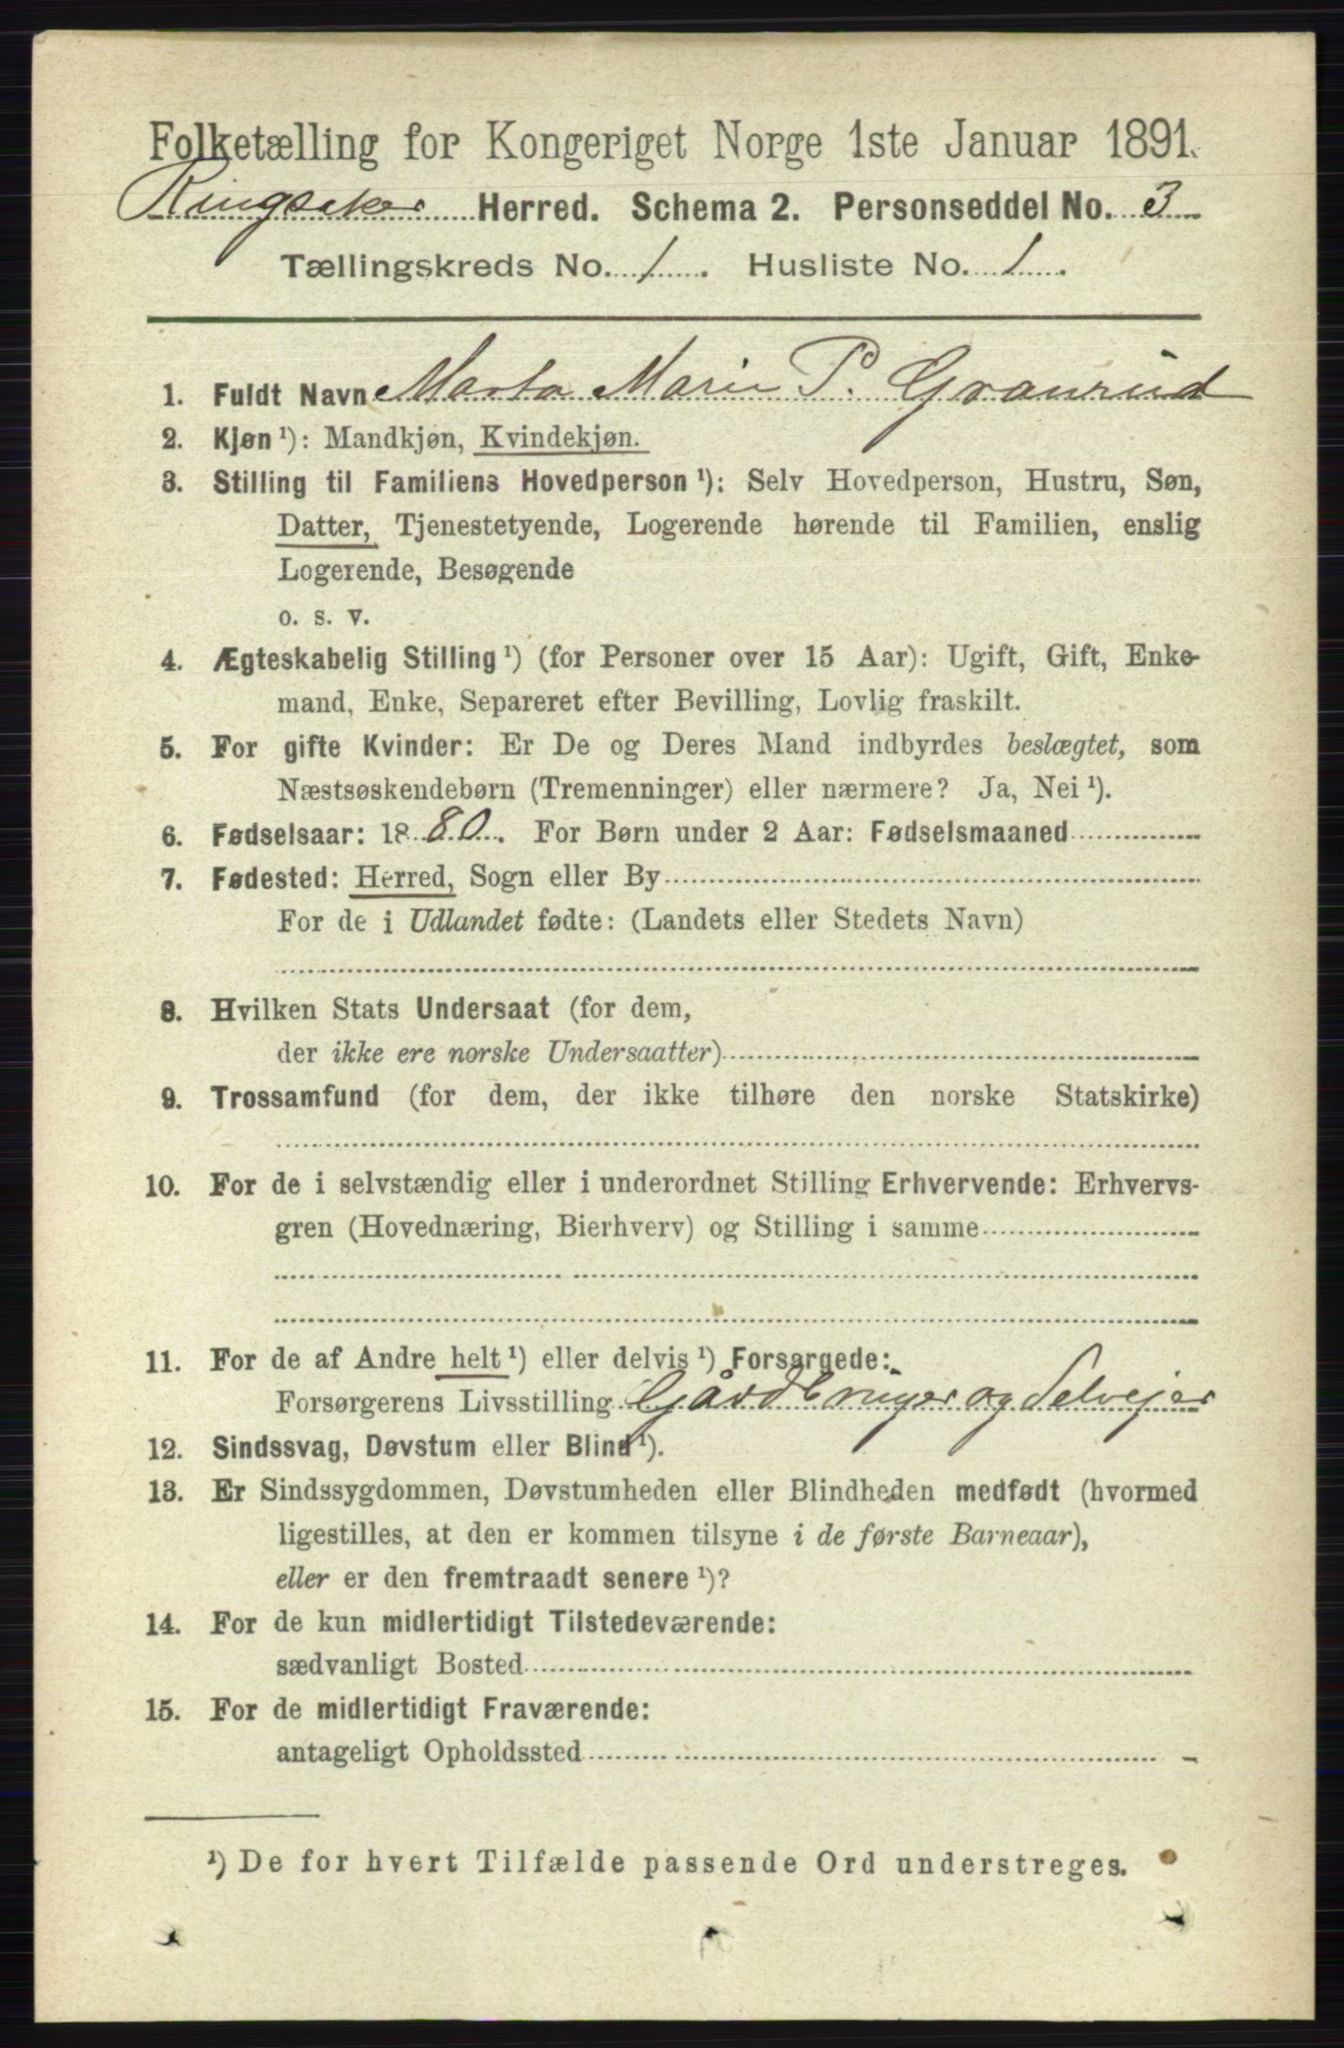 Folketælling for Kongeriget Norge 1ste Januar 1891.
Ringsaker Herred. Schema 2. Personseddel No. 3
Tællingskreds No. 1. Husliste No. 1.
1. Fuldt Navn Marta Marie P. Granrud
2. Kjøn ¹): Mandkjøn, Kvindekjøn.
3. Stilling til Familiens Hovedperson ¹): Selv Hovedperson, Hustru, Søn,
Datter, Tjenestetyende, Logerende hørende til Familien, enslig
Logerende, Besøgende
o. s. v.
4. Ægteskabelig Stilling ¹) (for Personer over 15 Aar): Ugift, Gift, Enke-
mand, Enke, Separeret efter Bevilling, Lovlig fraskilt.
5. For gifte Kvinder: Er De og Deres Mand indbyrdes beslægtet, som
Næstsøskendebørn (Tremenninger) eller nærmere? Ja, Nei ¹).
6. Fødselsaar: 1880. For Børn under 2 Aar: Fødselsmaaned
7. Fødested: Herred, Sogn eller By
For de i Udlandet fødte: (Landets eller Stedets Navn)
8. Hvilken Stats Undersaat (for dem,
der ikke ere norske Undersaatter)
9. Trossamfund (for dem, der ikke tilhøre den norske Statskirke)
10. For de i selvstændig eller i underordnet Stilling Erhvervende: Erhvervs-
gren (Hovednæring, Bierhverv) og Stilling i samme
11. For de af Andre helt ¹) eller delvis ¹) Forsørgede:
Forsørgerens Livsstilling Gårdbruger og Selvejer
12. Sindssvag, Døvstum eller Blind ¹).
13. Er Sindssygdommen, Døvstumheden eller Blindheden medfødt (hvormed
ligestilles, at den er kommen tilsyne i de første Barneaar),
eller er den fremtraadt senere ¹)?
14. For de kun midlertidigt Tilstedeværende:
sædvanligt Bosted
15. For de midlertidigt Fraværende:
antageligt Opholdssted
¹) De for hvert Tilfælde passende Ord understreges.